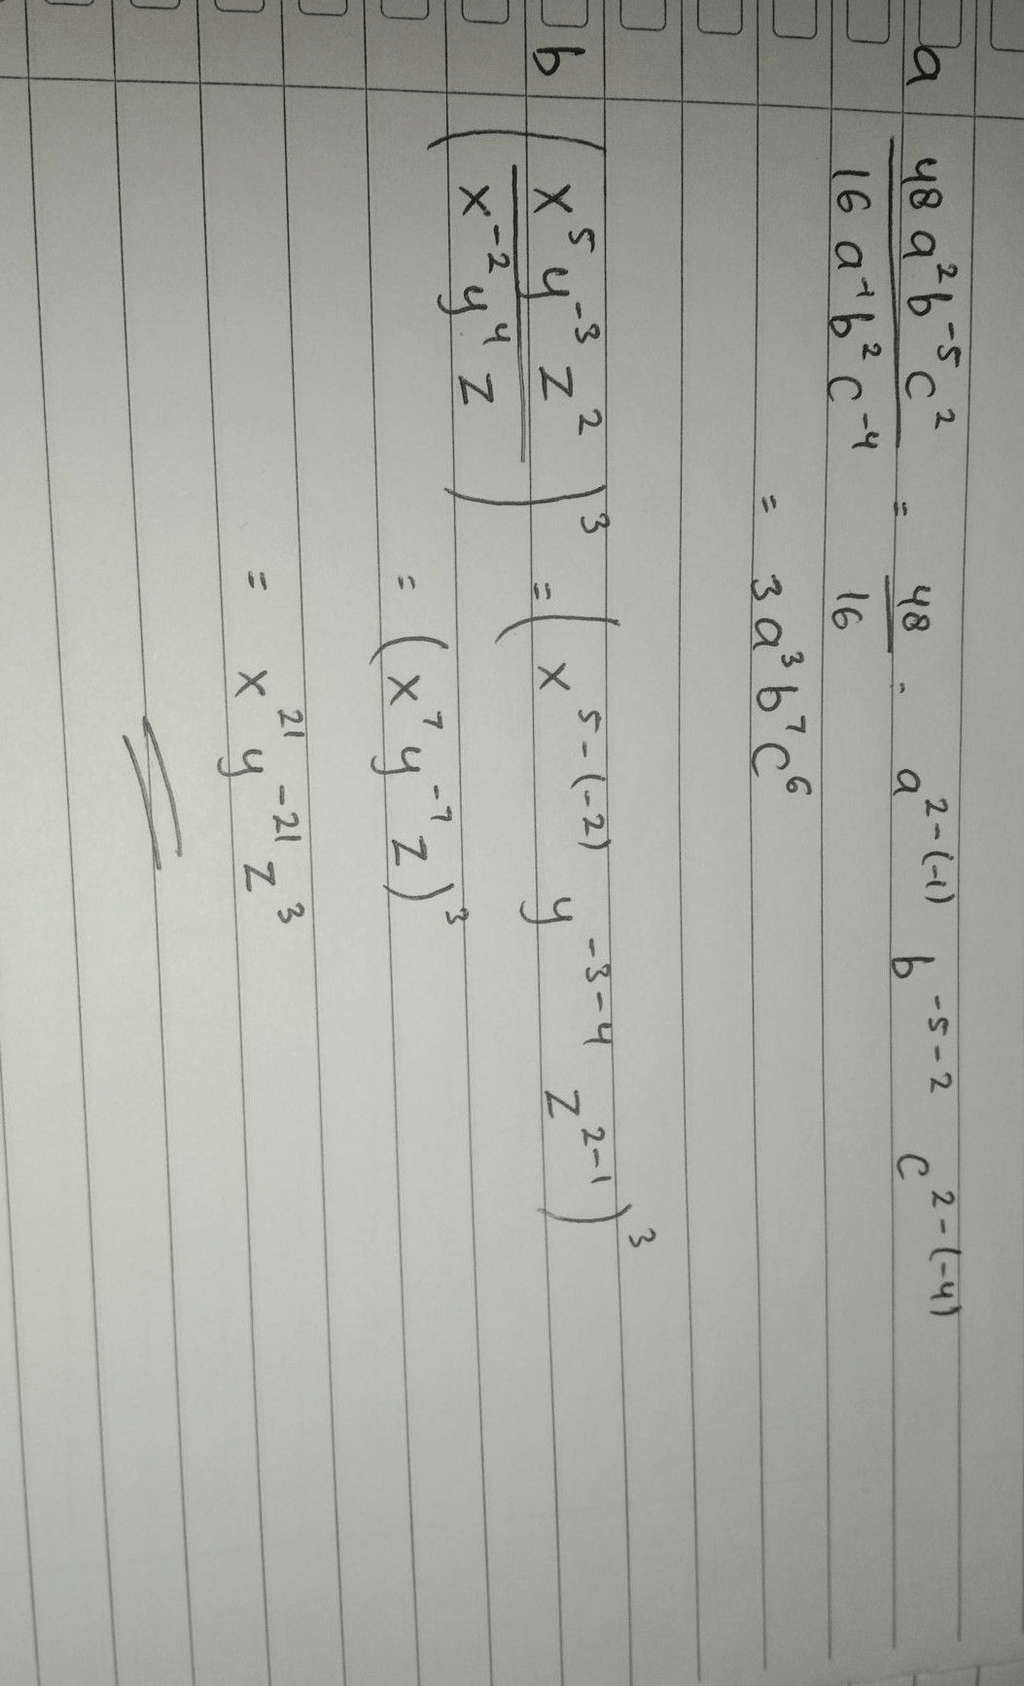 a 48a²b⁻⁵c² / 16a⁻¹b²c⁻⁴ = 48/16 . a²⁻⁽⁻¹⁾ b⁻⁵⁻² c²⁻⁽⁻⁴⁾
= 3a³b⁷c⁶
b (x⁵y⁻³z² / x⁻²y⁴z)³ = (x⁵⁻⁽⁻²⁾ y⁻³⁻⁴ z²⁻¹)³
= (x⁷y⁻⁷z)³
= x²¹y⁻²¹z³